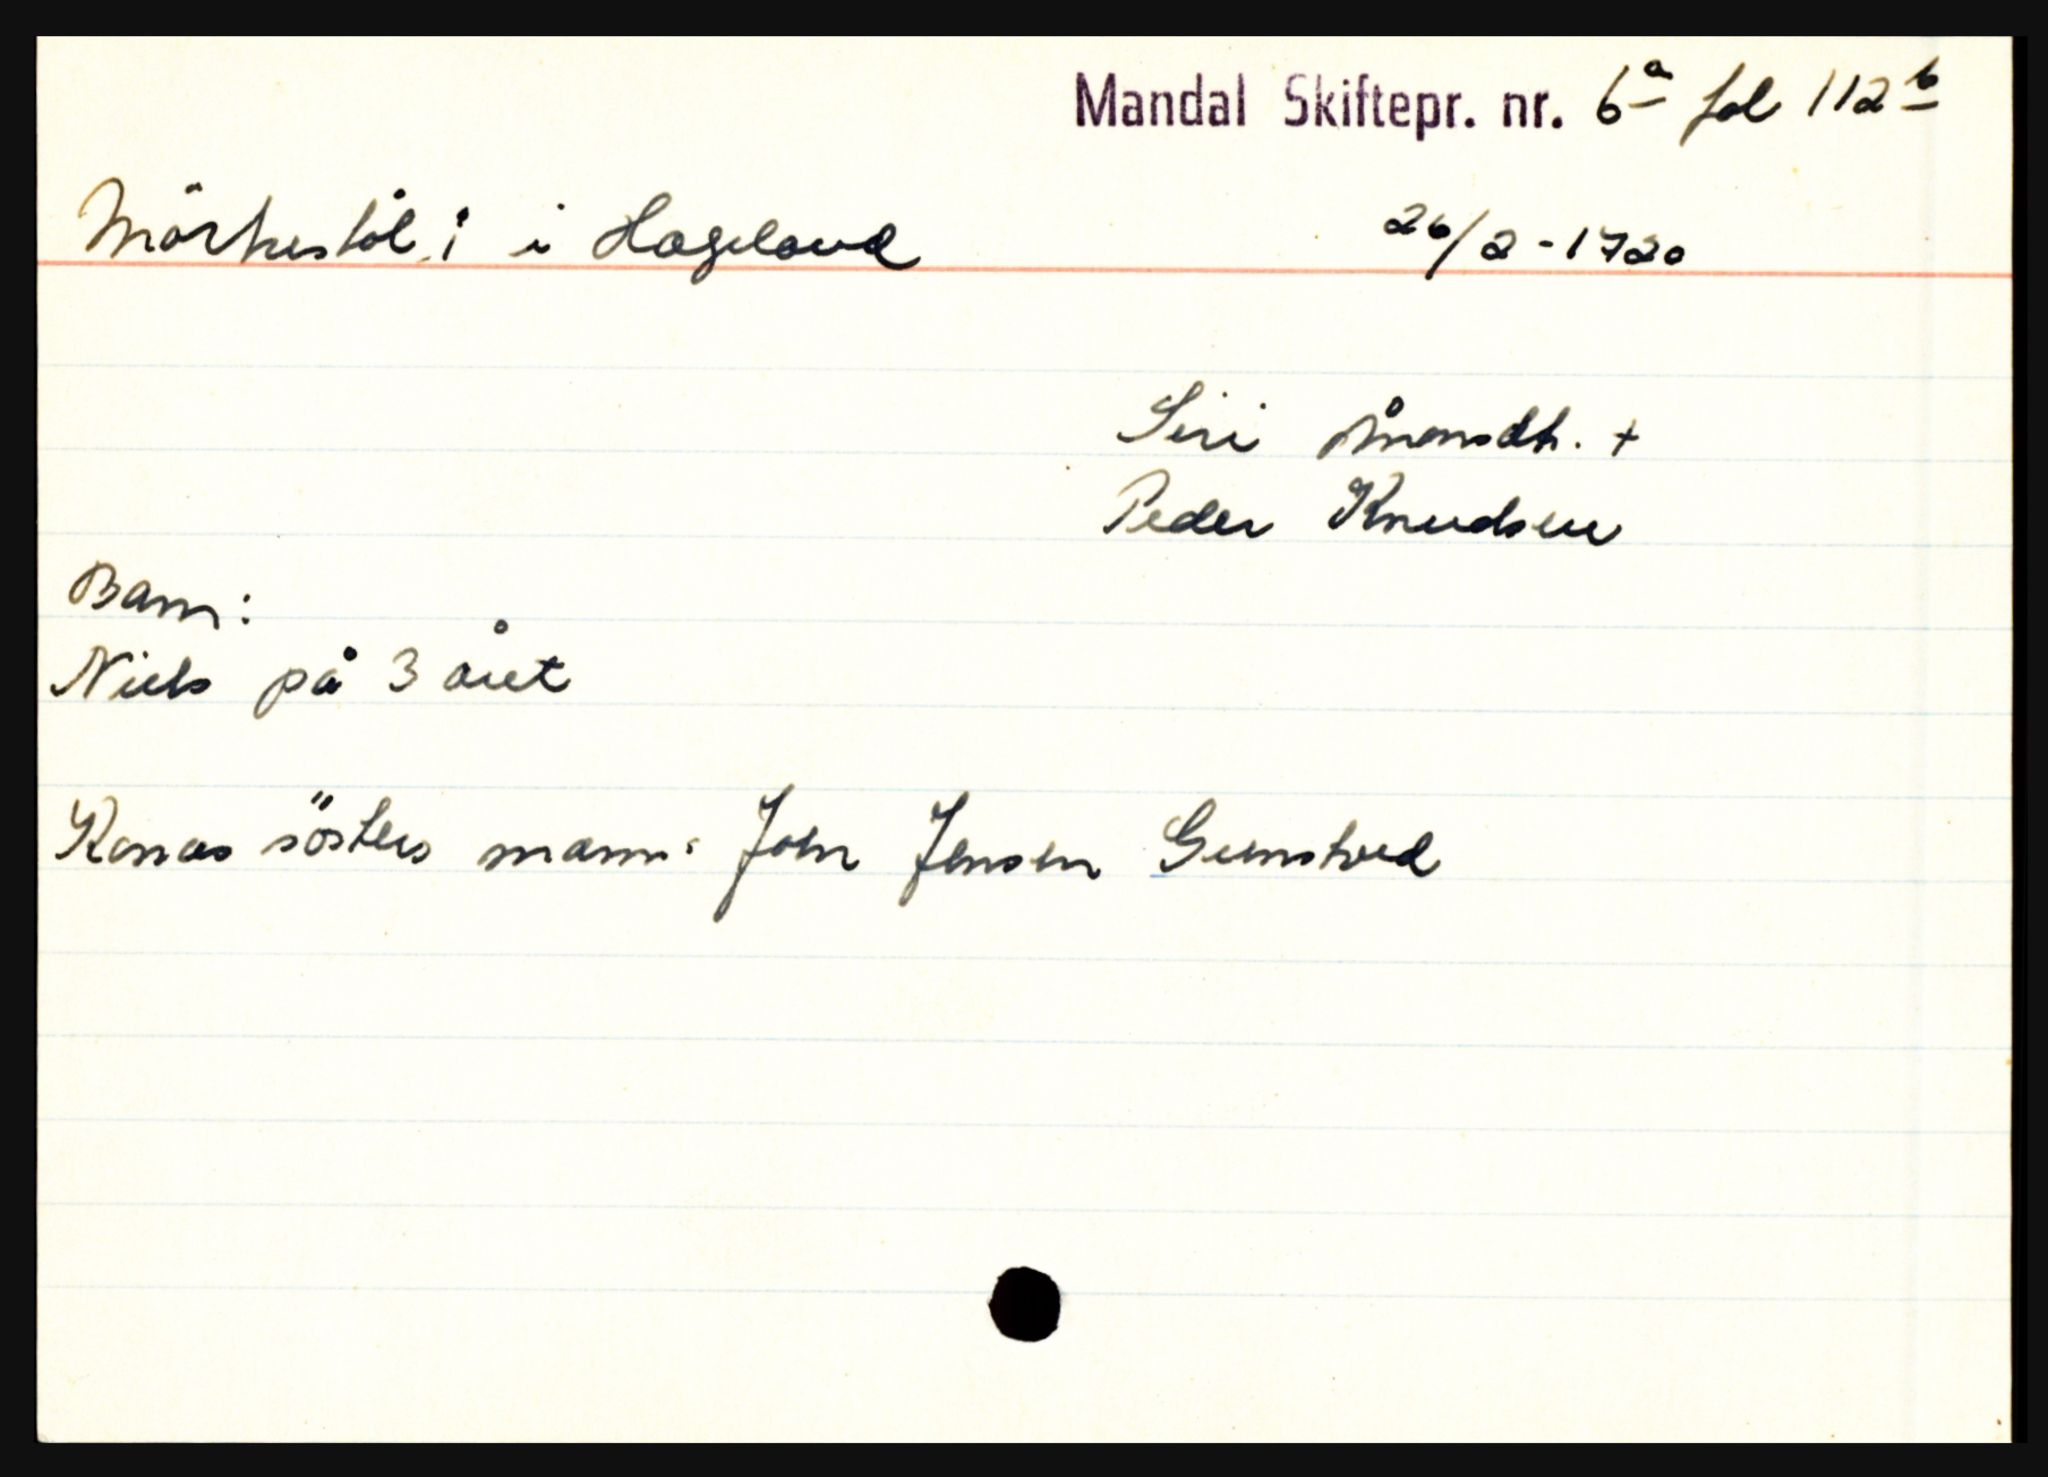 Mandal Skiftepr. nr. 6a fol 112b
Mörkestöl i i Hægeland 26/2-1720
Siri Åmonsdtr. +
Peder Knudsen
Barn:
Niels på 3 året
Konas sösters mann: John Jensen Gumstved